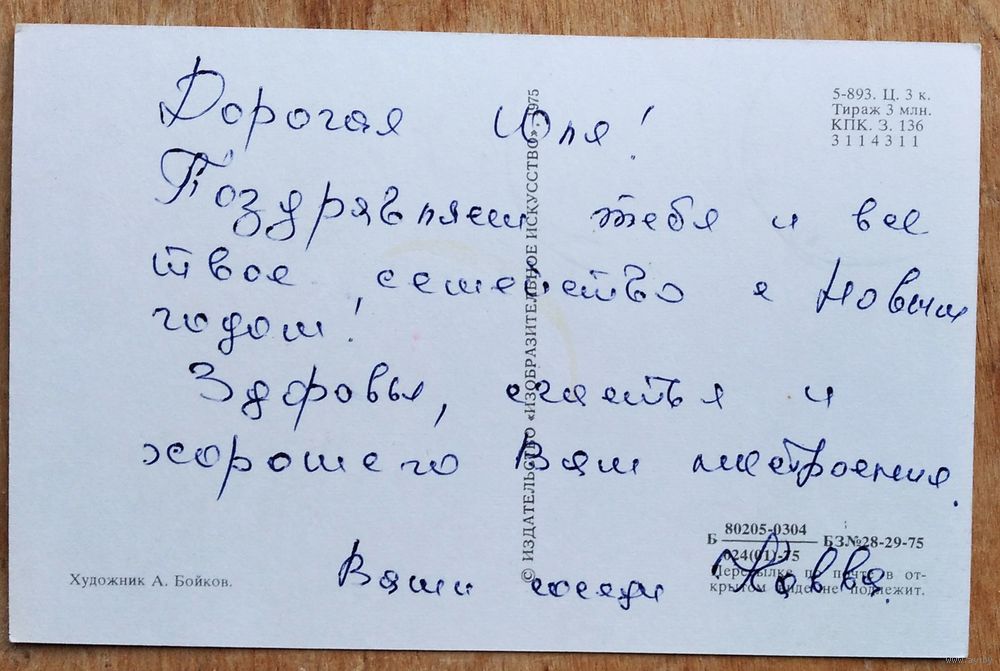 Дорогая Юля!
Поздравляем тебя и все
твое семейство с Новым
годом!
Здоровья, счастья и
хорошего Вам настроения.
Ваши соседи
5-893. Ц. 3 к.
Тираж 3 млн.
КПК. З. 136
3114311
© ИЗДАТЕЛЬСТВО «ИЗОБРАЗИТЕЛЬНОЕ ИСКУССТВО». 1975
Б 80205-0304 БЗ№28-29-75
024(01)-75
Пересылке по почте в от-
крытом виде не подлежит.
Художник А. Бойков.